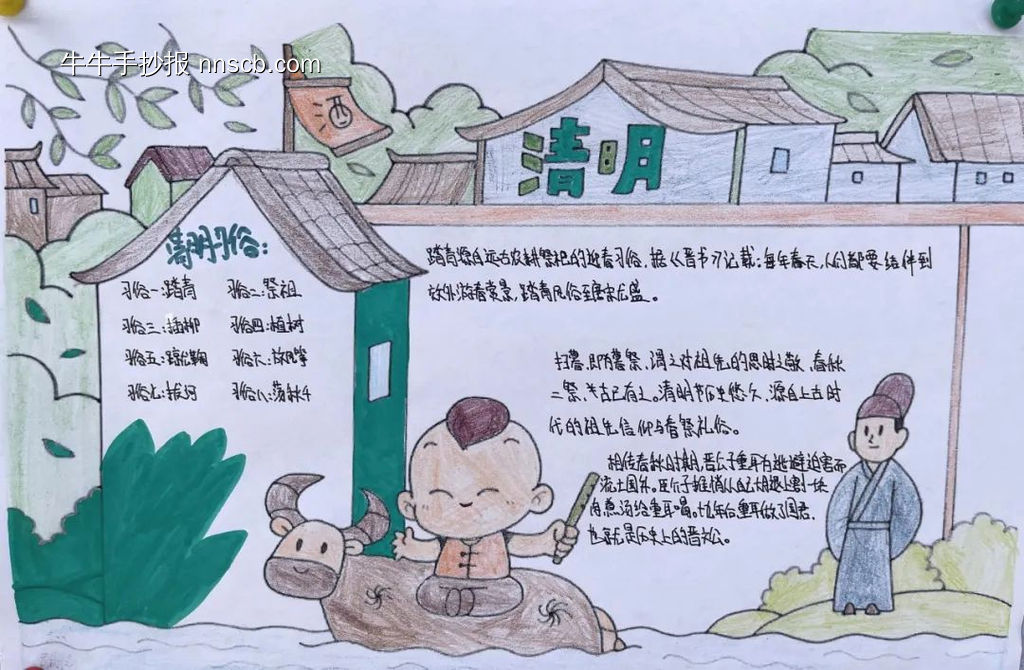 牛牛手抄报 nnscb.com
酒
清明
清明习俗:
习俗一:踏青 习俗二:祭祖
习俗三:插柳 习俗四:植树
习俗五:蹴鞠 习俗六:放风筝
习俗七:拔河 习俗八:荡秋千
踏青源自远古农耕祭祀的迎春习俗,据《晋书》记载:每年春天,人们都要结伴到
郊外游春赏景,踏青民俗至唐宋尤盛。
扫墓,即为墓祭,谓之对祖先的思时之敬,春秋
二祭,古已有之。清明节历史悠久,源自上古时
代的祖先信仰与春祭礼俗。
相传春秋时期,晋公子重耳为逃避迫害而
流亡国外。臣介子推悄从自己大腿上割一块
肉煮汤给重耳喝。十九年后重耳做了国君,
也就是历史上的晋文公。